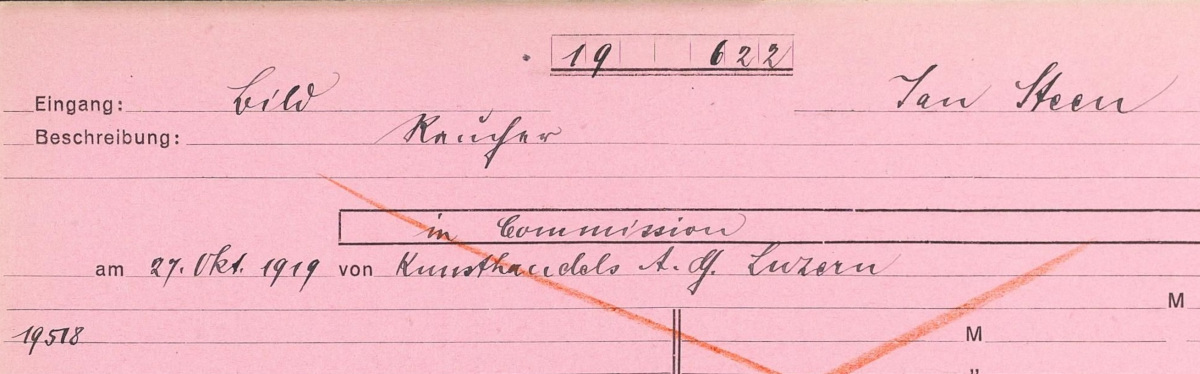 19 622
Eingang: Bild Jan Steen
Beschreibung: Raucher
in Commission
am 27. Okt. 1919 von Kunsthandels A. G. Luzern
M
19518 M
"